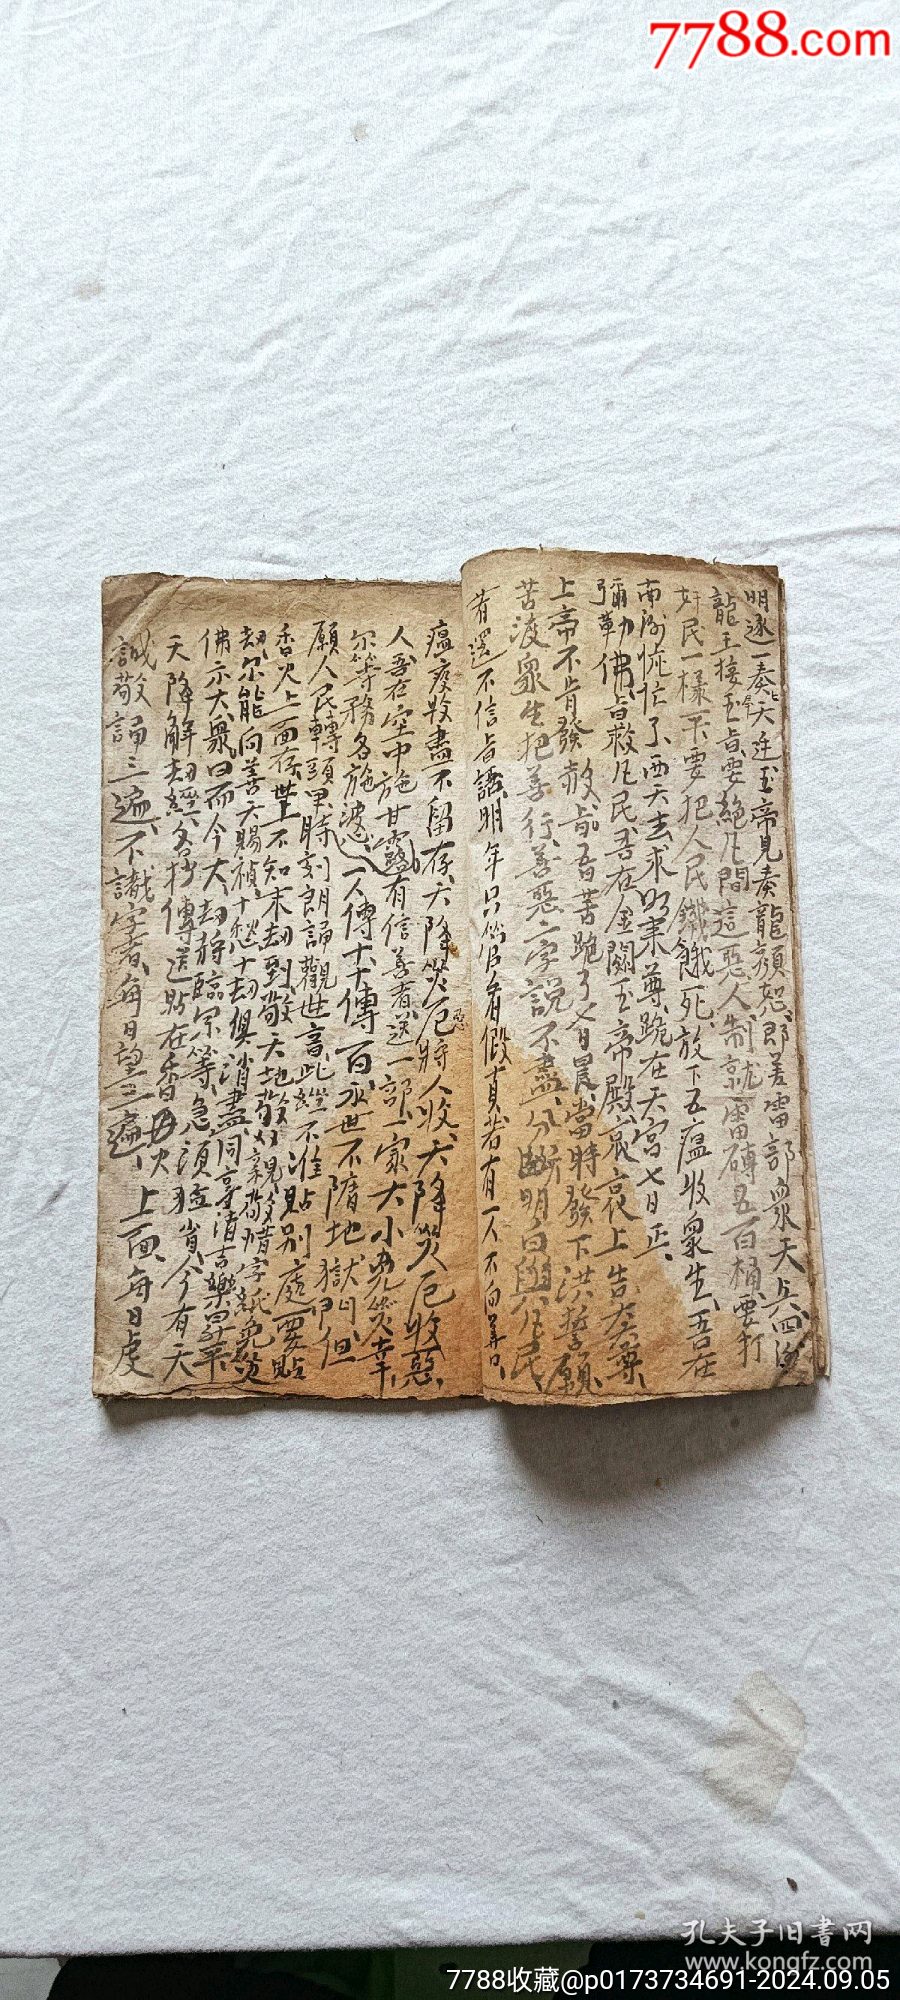 7788.com
明逐一奏上天廷玉帝見奏龍顏怒即差雷部眾天兵四海
龍王接玉旨要絕凡間這惡人制就雷磚五百桶要打
奸民一樣不要把人民鐵餓死放下五瘟收眾生吾在
南海慌忙了西天去求如來尊跪在天宮七日正
彌勒佛旨救凡民吾在金闕玉帝殿哀哀上告大天尊
上帝不肯發赦旨吾苦跪了七日晨當時發下洪誓願
苦渡眾生把善行善惡二字說不盡分明白與凡民
若還不信吾語明年只管看假真若有一人不向善
瘟疫收盡不留存天降災厄將人收天降災厄收惡
人吾在空中施甘露有信善者送一部一家大小免災幸
尔等務各施送一人傳十十傳百永世不墮地獄門但
願人民轉頭早時刻良誦觀世音此經不准貼別處要貼
香火上面存世上不知末劫到敬天地敬
劫尔能向善天賜禎十愁十劫俱消盡同享清吉樂昇平
佛示大眾曰而今大劫將臨尔等急須猛省今有天
天降解劫經各抄傳送貼在香火
上面每日虔
誠敬誦三遍不識字者每日望三遍
孔夫子旧書网
www.kongfz.com
7788收藏@p0173734691-2024.09.05